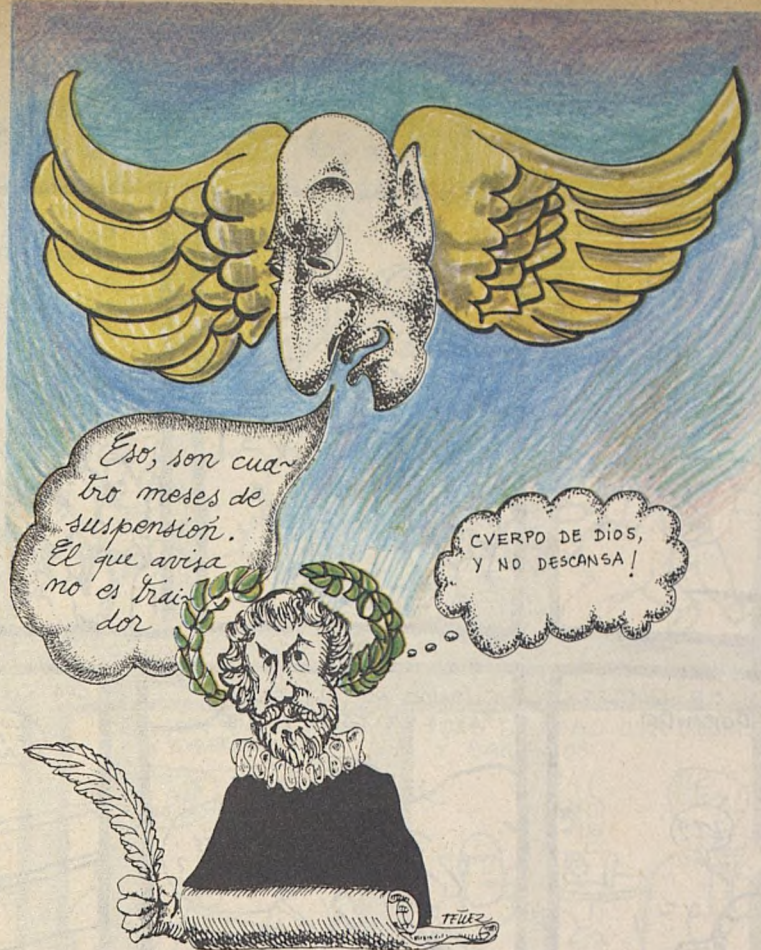 Eso, son cua-
tro meses de
suspensión.
El que avisa
no es trai-
dor
CVERPO DE DiOS,
Y NO DESCANSA!
TELLEZ